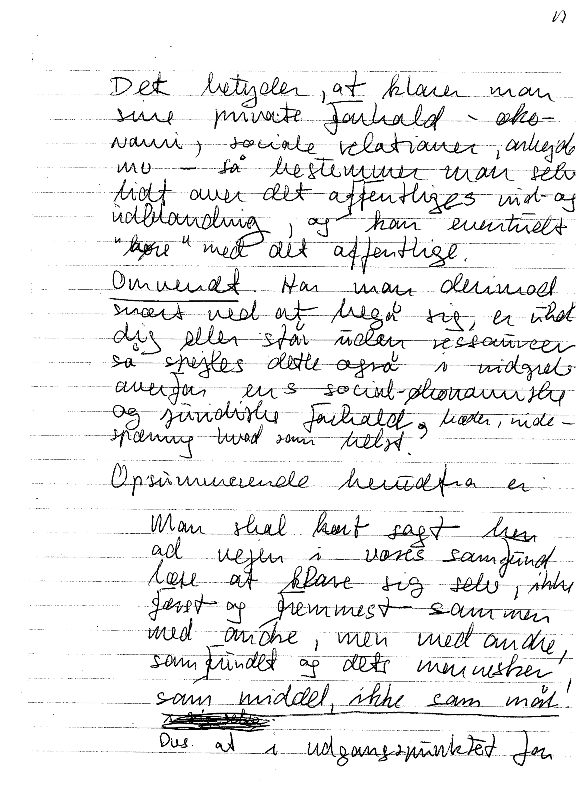 Det betyder, at klarer man
sine private forhold - øko-
nomi, sociale relationer, arbejde
mv - så bestemmer man selv
lidt over det offentliges ind- og
udblanding, og kan eventuelt
med det offentlige.
Omvendt. Har man derimod
svært ved at begå sig, er uhel-
dig eller står uden ressourcer
så spejles dette også i
overfor ens social-økonomiske
og juridiske forhold,
hvad som helst.
Opsummerende herudfra er:
Man skal kort sagt hen
ad vejen i vores samfund
lære at klare sig selv, ikke
først og fremmest sammen
med andre, men med andre,
samfundet og dets mennesker,
som middel, ikke som mål!
Dvs. at i udgangspunktet for